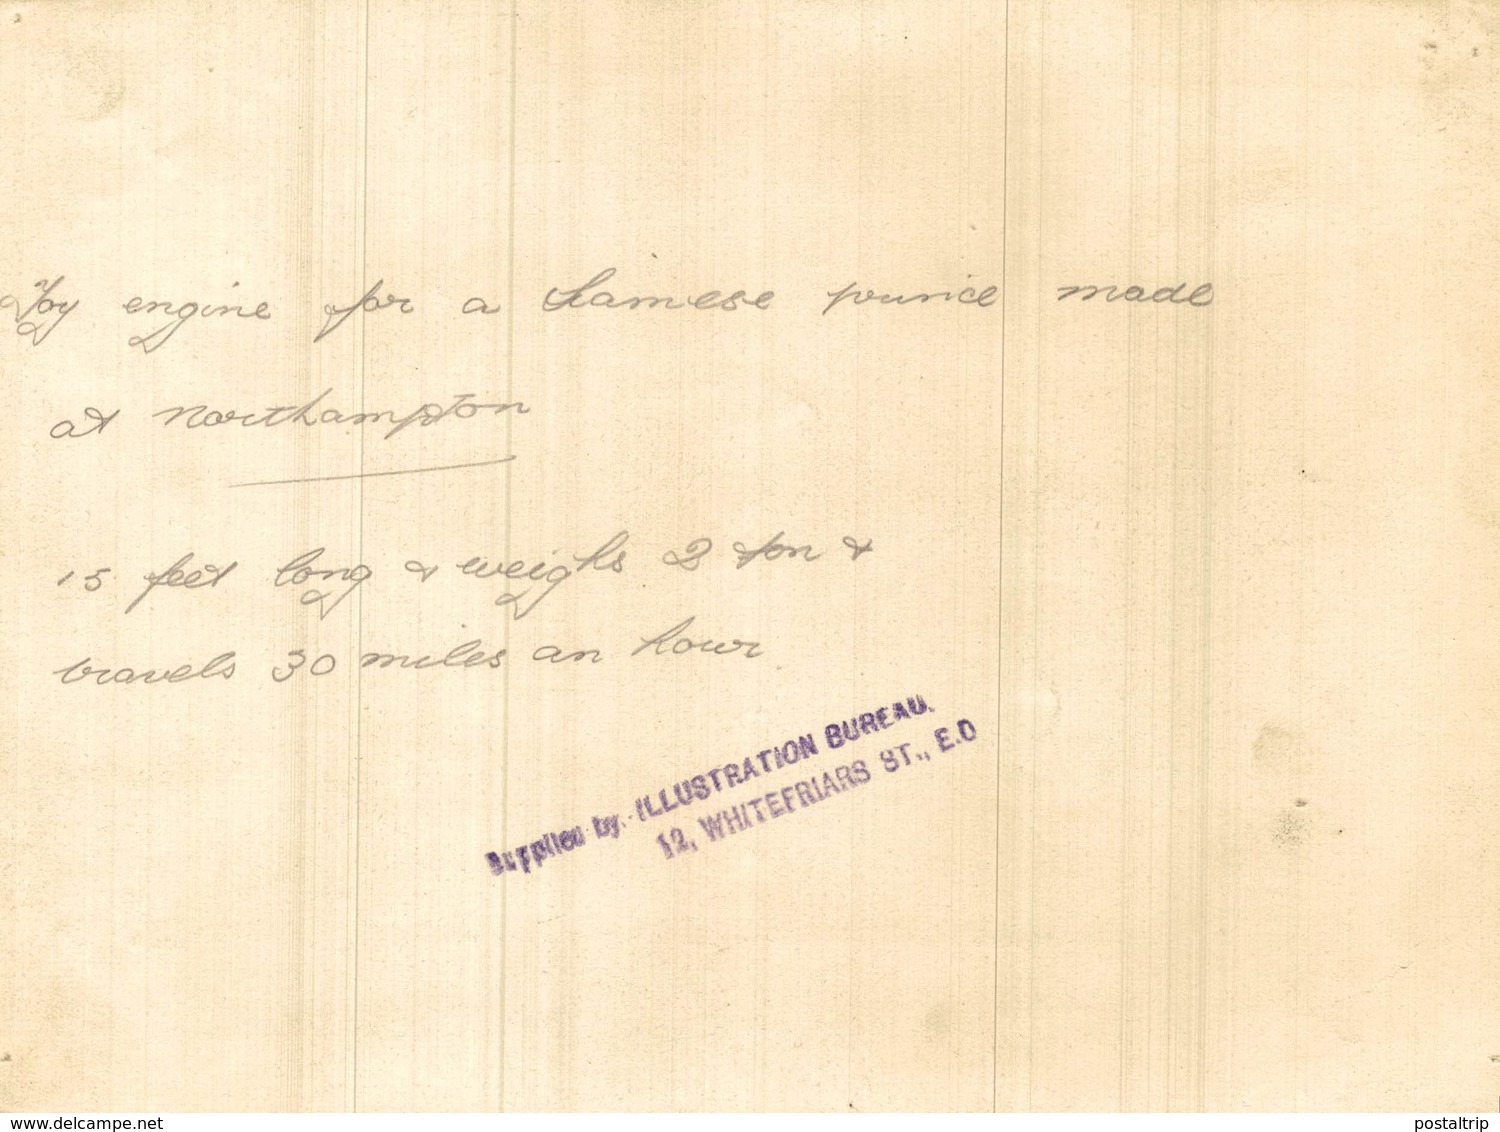 Toy engine for a Siamese prince made
at Northampton
15 feet long & weighs 2 ton &
travels 30 miles an hour
Supplied by ILLUSTRATION BUREAU.
12, WHITEFRIARS ST., E.C
www.delcampe.net
postaltrip